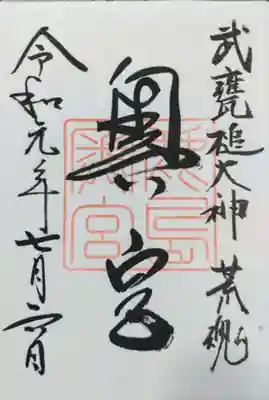 武甕槌大神 荒魂
奥宮
令和元年七月六日